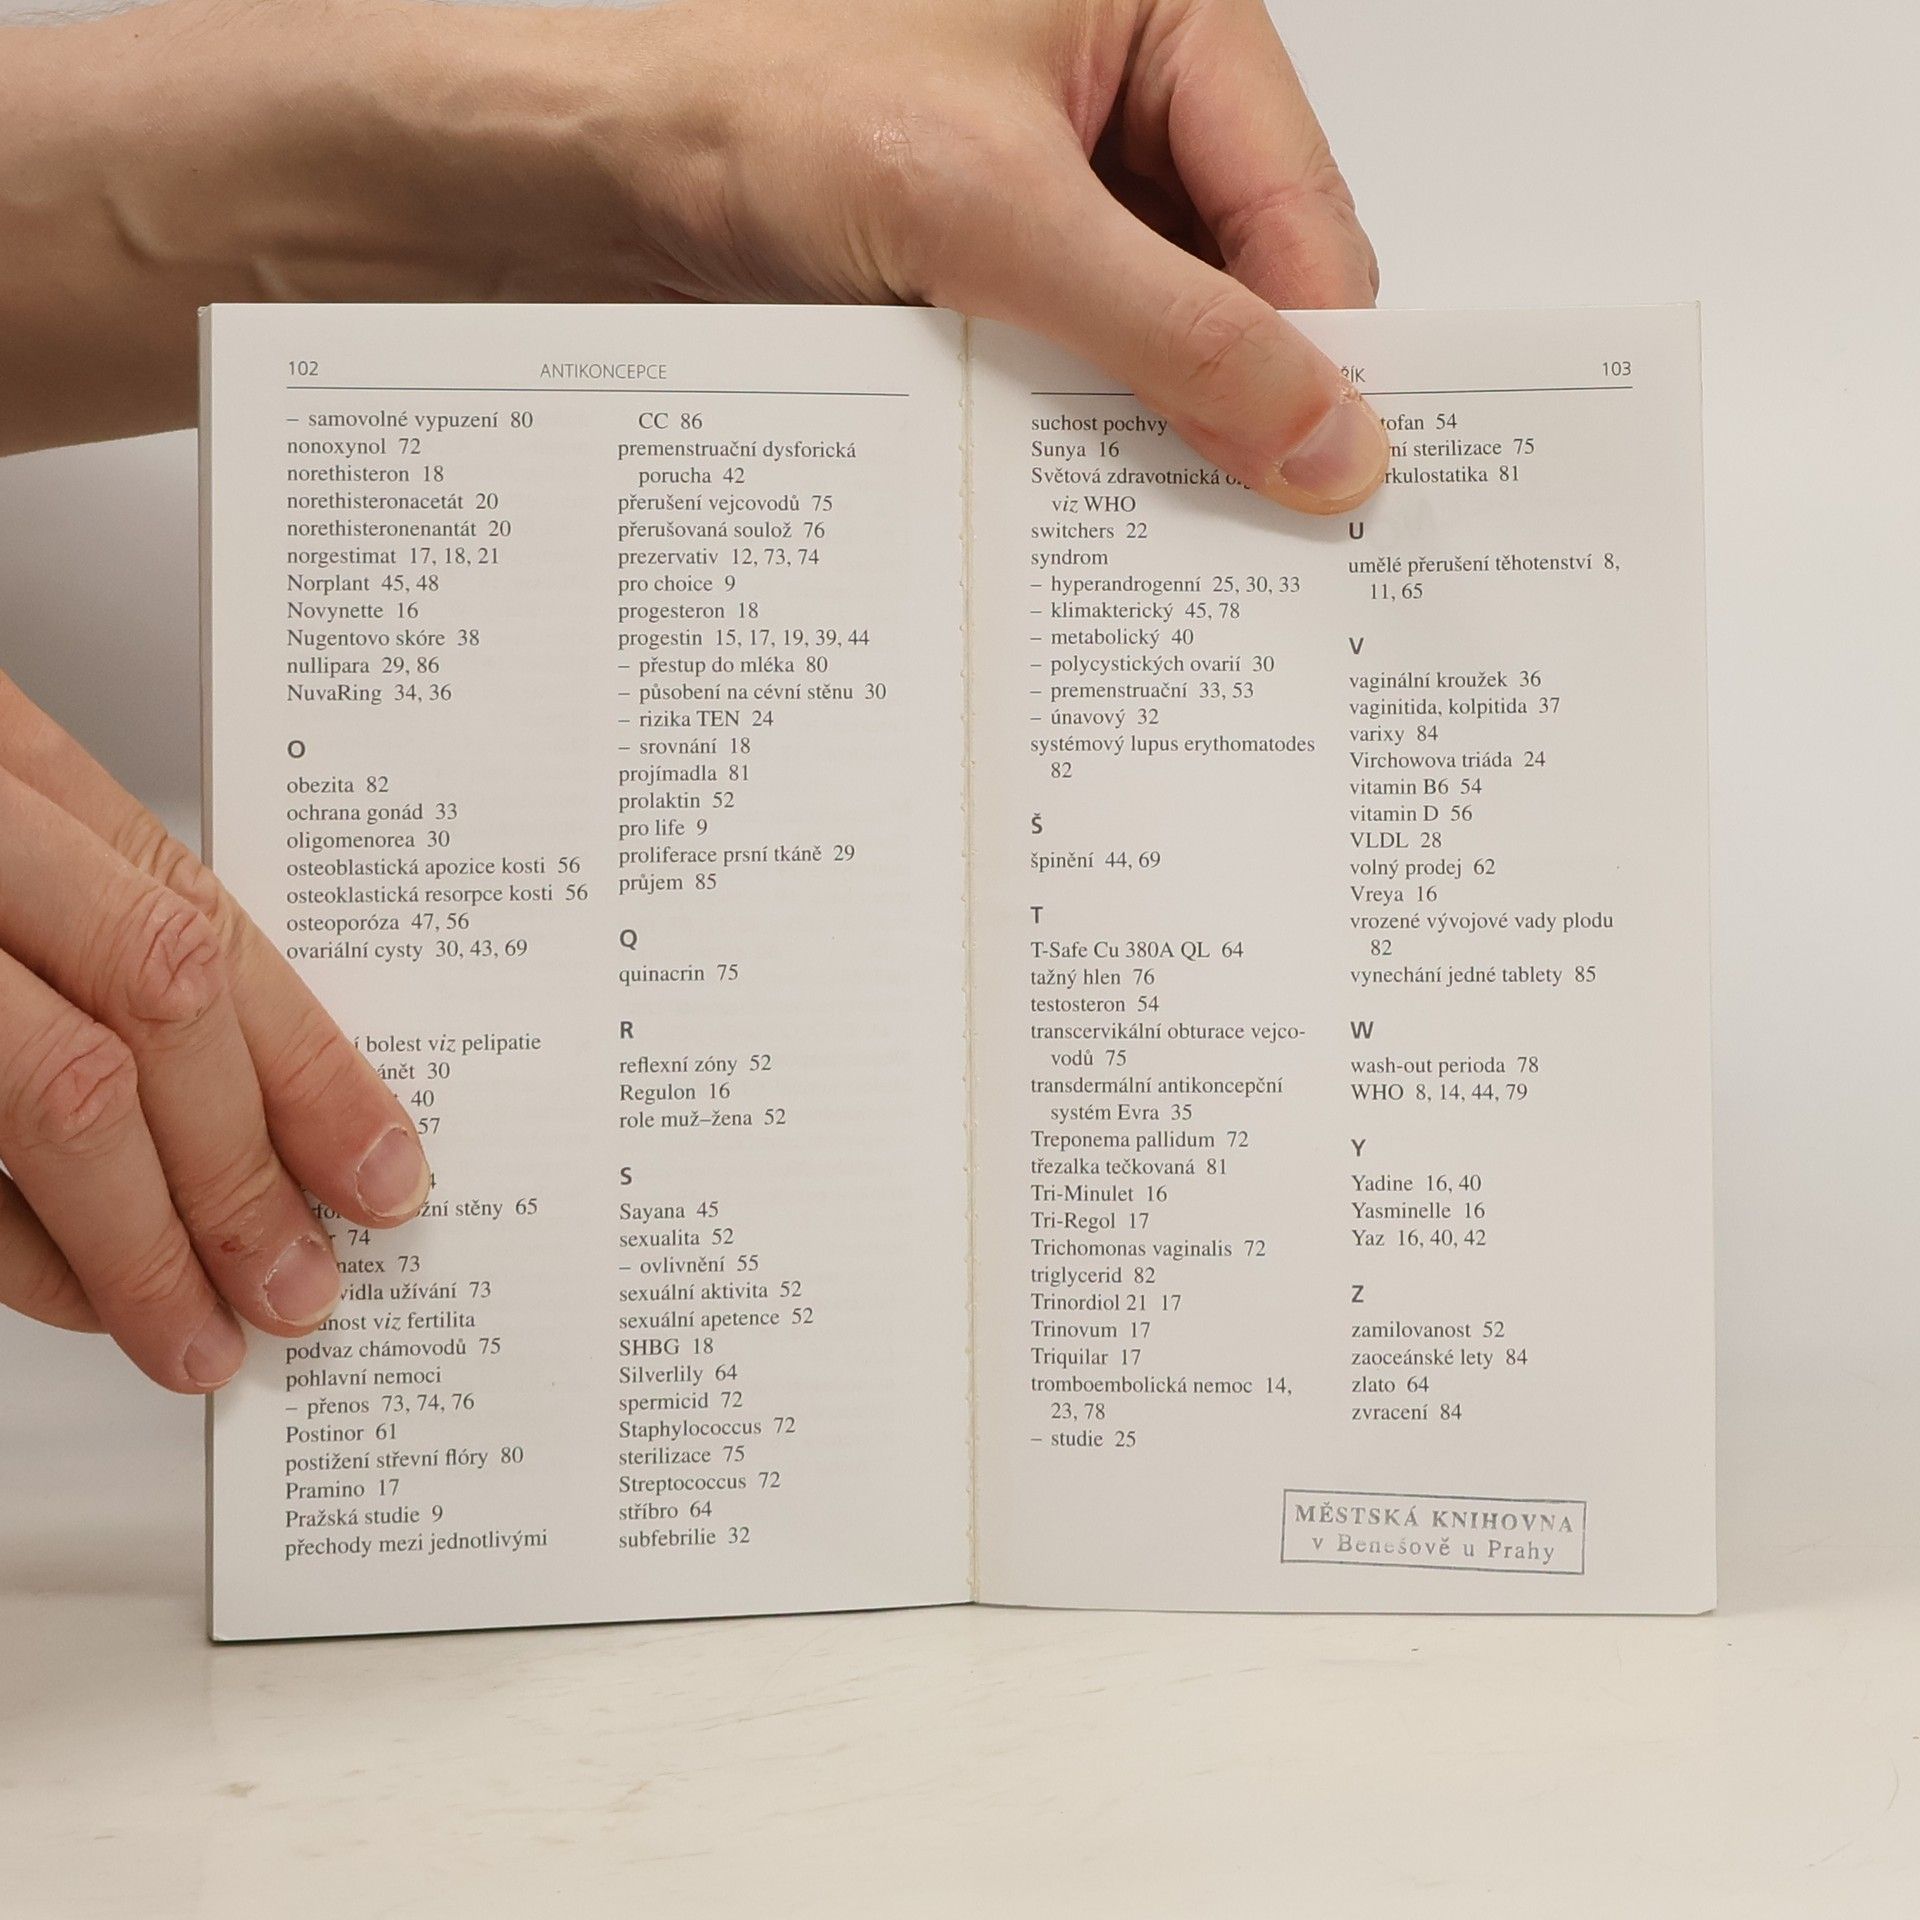 102
ANTIKONCEPCE
– samovolné vypuzení 80
nonoxynol 72
norethisteron 18
norethisteronacetát 20
norethisteronenantát 20
norgestimat 17, 18, 21
Norplant 45, 48
Novynette 16
Nugentovo skóre 38
nullipara 29, 86
NuvaRing 34, 36
O
obezita 82
ochrana gonád 33
oligomenorea 30
osteoblastická apozice kosti 56
osteoklastická resorpce kosti 56
osteoporóza 47, 56
ovariální cysty 30, 43, 69
bolest viz pelipatie
30
40
57
stěny 65
74
73
užívání 73
viz fertilita
podvaz chámovodů 75
pohlavní nemoci
– přenos 73, 74, 76
Postinor 61
postižení střevní flóry 80
Pramino 17
Pražská studie 9
přechody mezi jednotlivými
CC 86
premenstruační dysforická
porucha 42
přerušení vejcovodů 75
přerušovaná soulož 76
prezervativ 12, 73, 74
pro choice 9
progesteron 18
progestin 15, 17, 19, 39, 44
– přestup do mléka 80
– působení na cévní stěnu 30
– rizika TEN 24
– srovnání 18
projímadla 81
prolaktin 52
pro life 9
proliferace prsní tkáně 29
průjem 85
Q
quinacrin 75
R
reflexní zóny 52
Regulon 16
role muž–žena 52
S
Sayana 45
sexualita 52
– ovlivnění 55
sexuální aktivita 52
sexuální apetence 52
SHBG 18
Silverlily 64
spermicid 72
Staphylococcus 72
sterilizace 75
Streptococcus 72
stříbro 64
subfebrilie 32
103
suchost pochvy
Sunya 16
Světová zdravotnická
viz WHO
switchers 22
syndrom
– hyperandrogenní 25, 30, 33
– klimakterický 45, 78
– metabolický 40
– polycystických ovarií 30
– premenstruační 33, 53
– únavový 32
systémový lupus erythomatodes
82
Š
špinění 44, 69
T
T-Safe Cu 380A QL 64
tažný hlen 76
testosteron 54
transcervikální obturace vejco-
vodů 75
transdermální antikoncepční
systém Evra 35
Treponema pallidum 72
třezalka tečkovaná 81
Tri-Minulet 16
Tri-Regol 17
Trichomonas vaginalis 72
triglycerid 82
Trinordiol 21 17
Trinovum 17
Triquilar 17
tromboembolická nemoc 14,
23, 78
– studie 25
54
sterilizace 75
81
U
umělé přerušení těhotenství 8,
11, 65
V
vaginální kroužek 36
vaginitida, kolpitida 37
varixy 84
Virchowova triáda 24
vitamin B6 54
vitamin D 56
VLDL 28
volný prodej 62
Vreya 16
vrozené vývojové vady plodu
82
vynechání jedné tablety 85
W
wash-out perioda 78
WHO 8, 14, 44, 79
Y
Yadine 16, 40
Yasminelle 16
Yaz 16, 40, 42
Z
zamilovanost 52
zaoceánské lety 84
zlato 64
zvracení 84
MĚSTSKÁ KNIHOVNA
v Benešově u Prahy